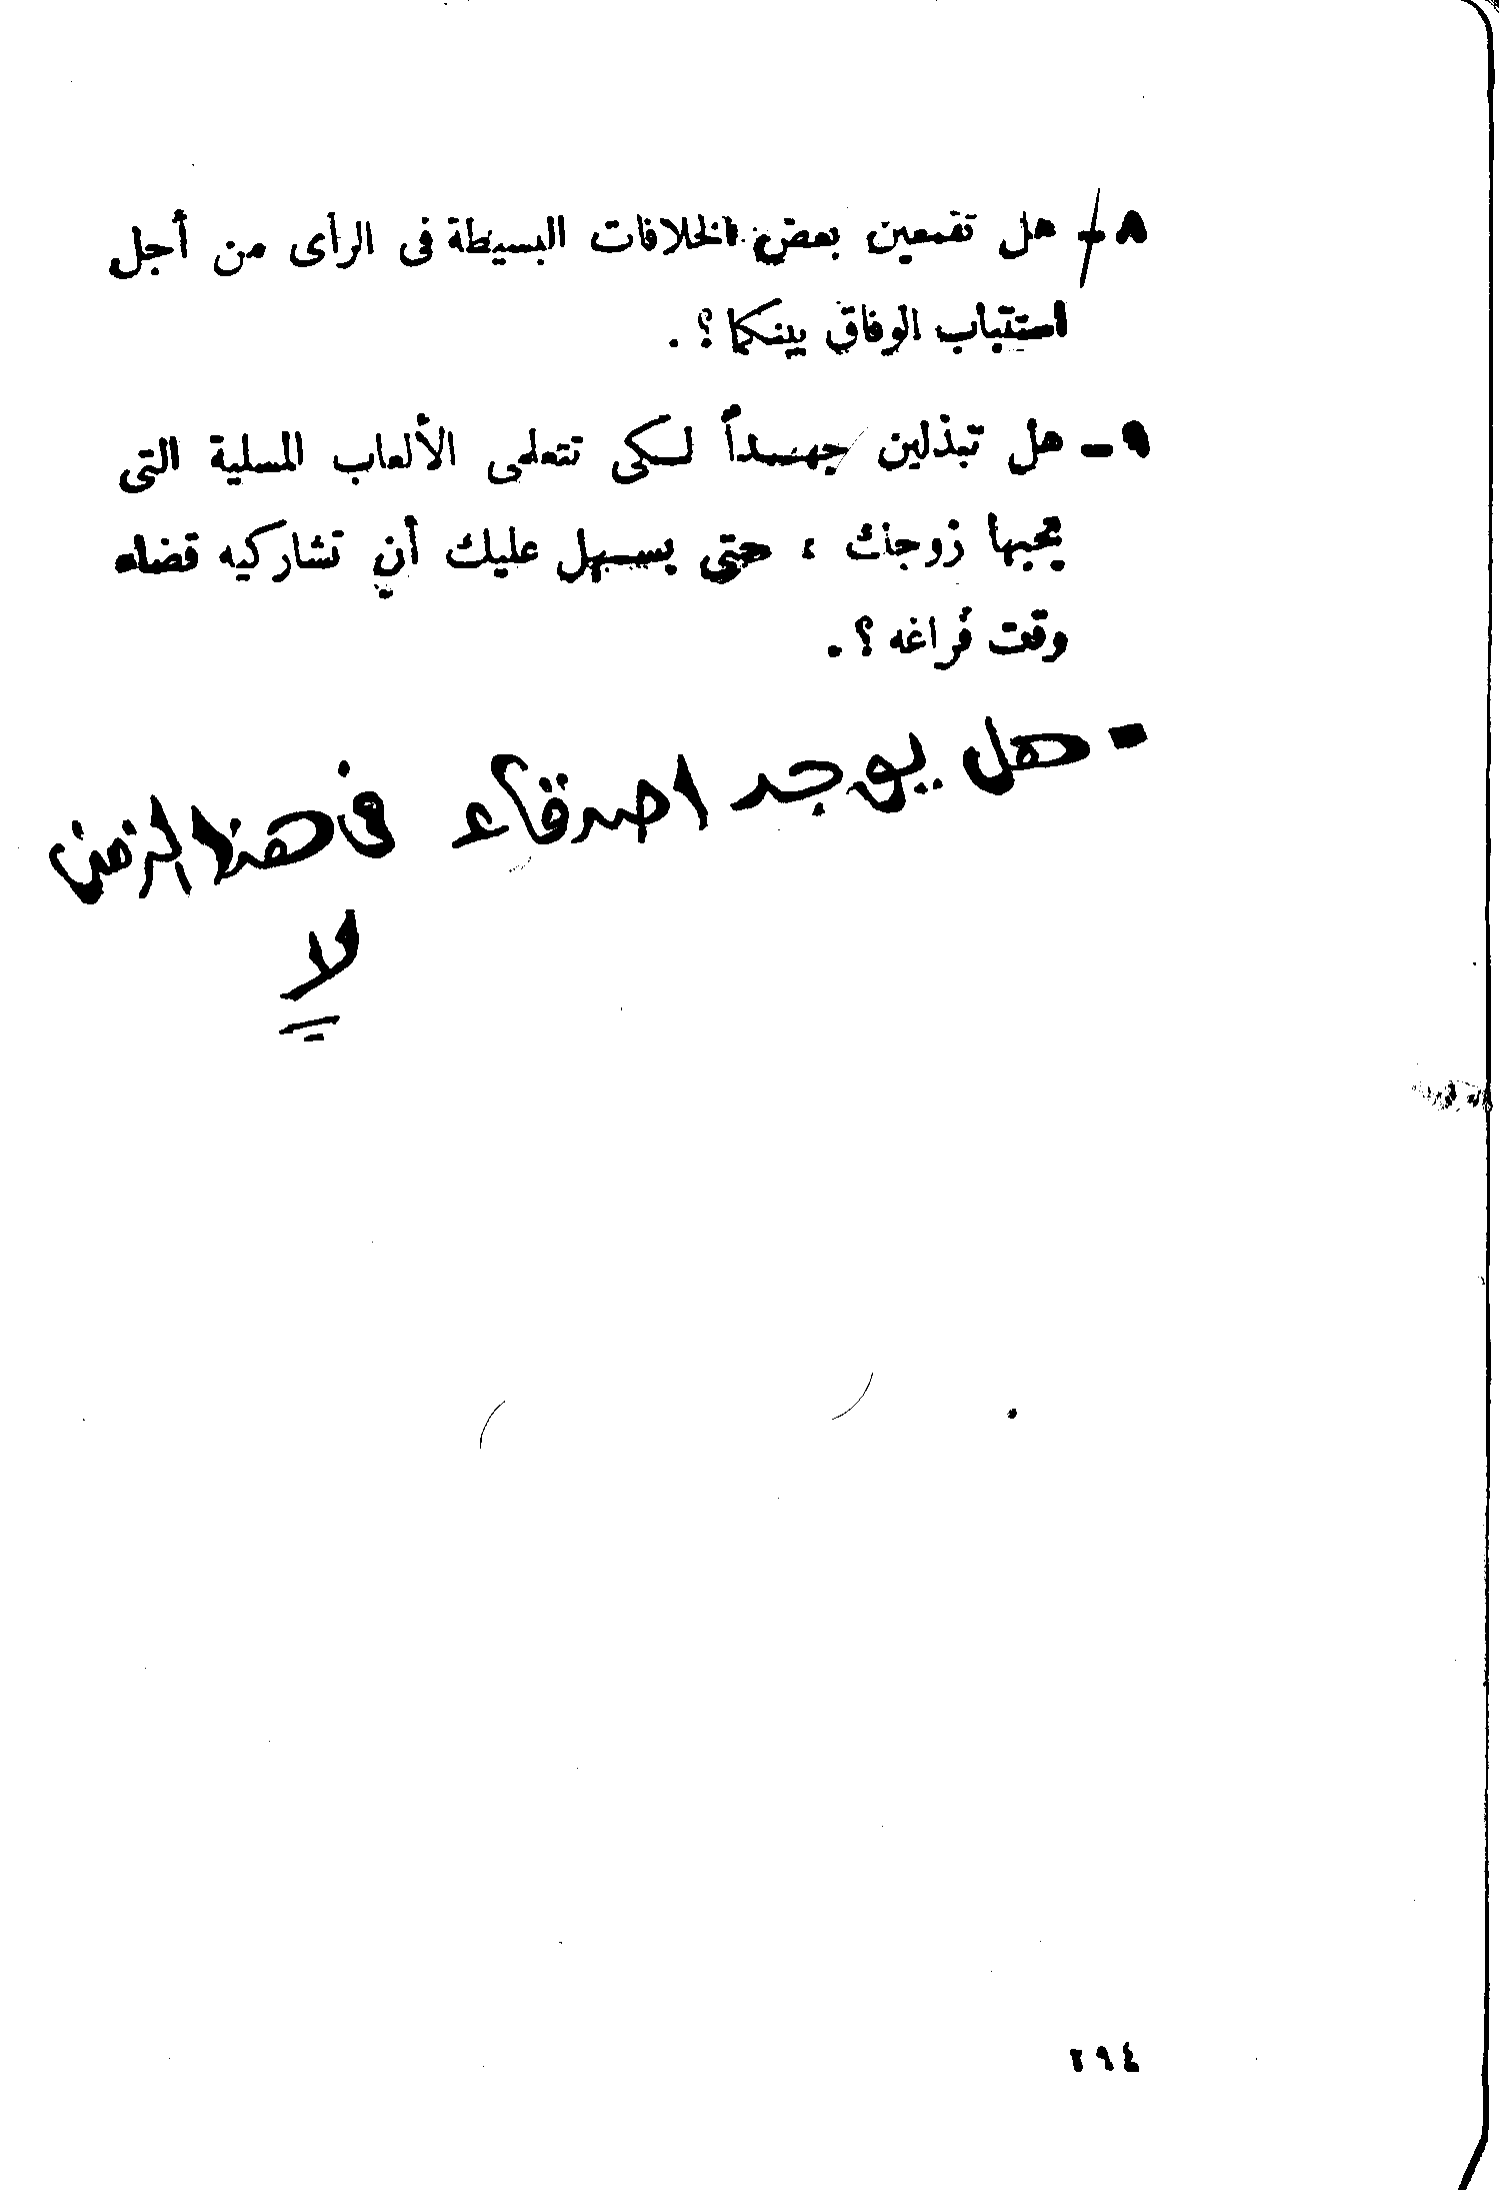 ٨ - هل تقمعين بعض الخلافات البسيطة فى الرأى من أجل
استتباب الوفاق بينكما ؟ .
٩ - هل تبذلين جهداً لكى تتعلمى الألعاب المسلية التى
يحبها زوجك ، حتى يسهل عليك أن تشاركيه قضاء
وقت فراغه ؟ .
- هل يوجد اصدقاء فى هذا الزمن
لا
٢٩٤